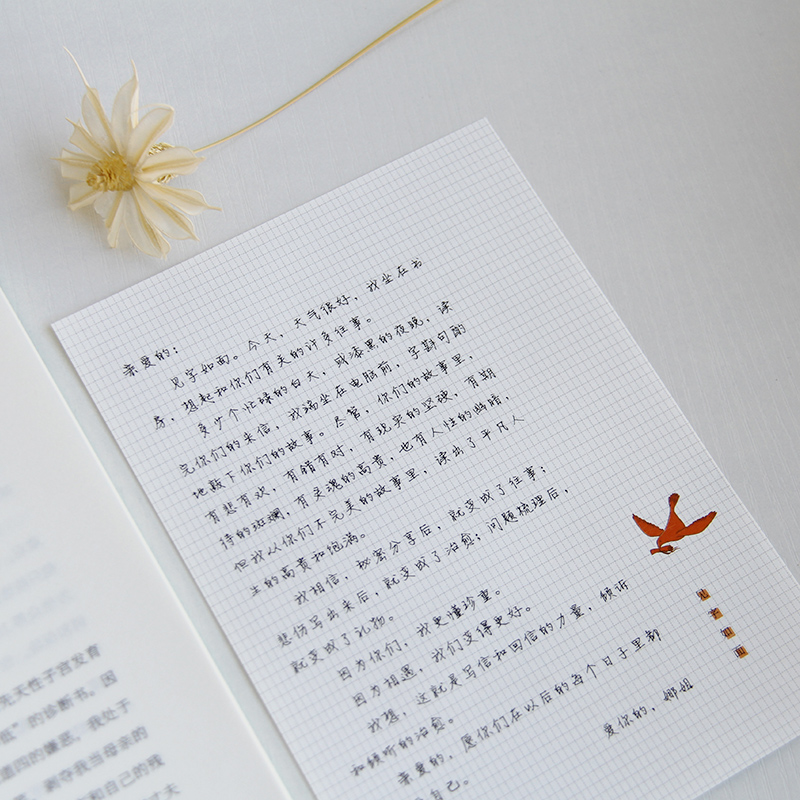 亲爱的：
见字如面。今天，天气很好，我坐在书
房，想起和你们有关的许多往事。
多少个忙碌的白天，或漆黑的夜晚，读
完你们的来信，我端坐在电脑前，字斟句酌
地敲下你们的故事。尽管，你们的故事里，
有悲有欢，有错有对，有现实的坚硬，有期
待的斑斓，有灵魂的高贵，也有人性的幽暗，
但我从你们不完美的故事里，读出了平凡人
生的高贵和饱满。
我相信，秘密分享后，就变成了往事；
悲伤写出来后，就变成了治愈；问题梳理后，
就变成了礼物。
因为你们，我更懂珍重。
因为相遇，我们变得更好。
我想，这就是写信和回信的力量，倾诉
和倾听的治愈。
亲爱的，愿你们在以后的每个日子里都
自己。
爱你的，娜姐
先天性子宫发育
”的诊断书。因
的嫌恶，我处于
剥夺我当母亲的
和自己的残
天